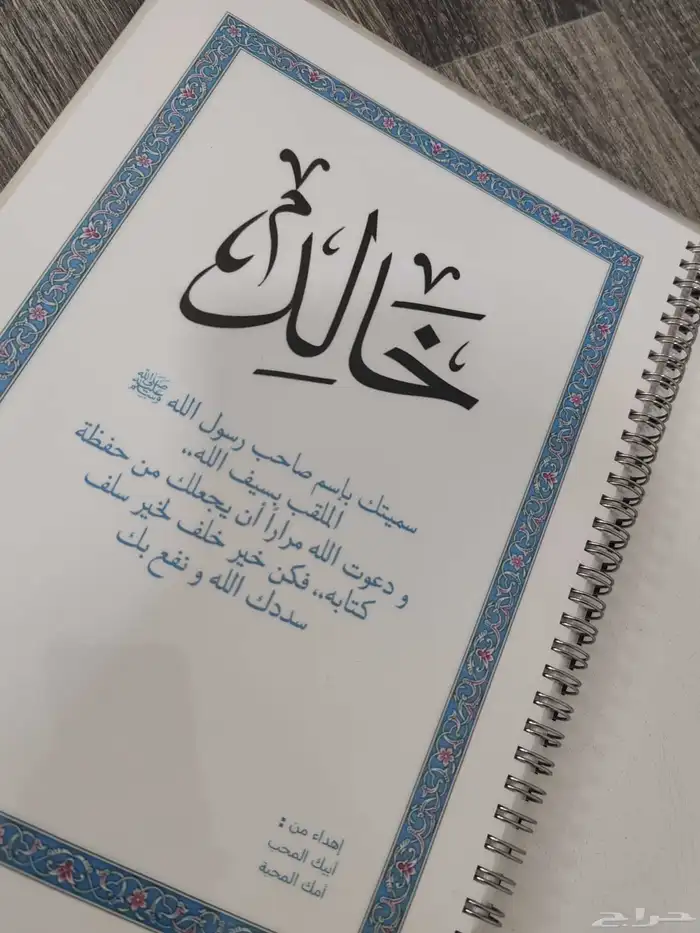 خالد
سميتك بإسم صاحب رسول الله ﷺ
الملقب بسيف الله..
و دعوت الله مراراً أن يجعلك من حفظة
كتابه.. فكن خير خلف لخير سلف
سددك الله و نفع بك
إهداء من :
أبيك المحب
أمك المحبة
حراج